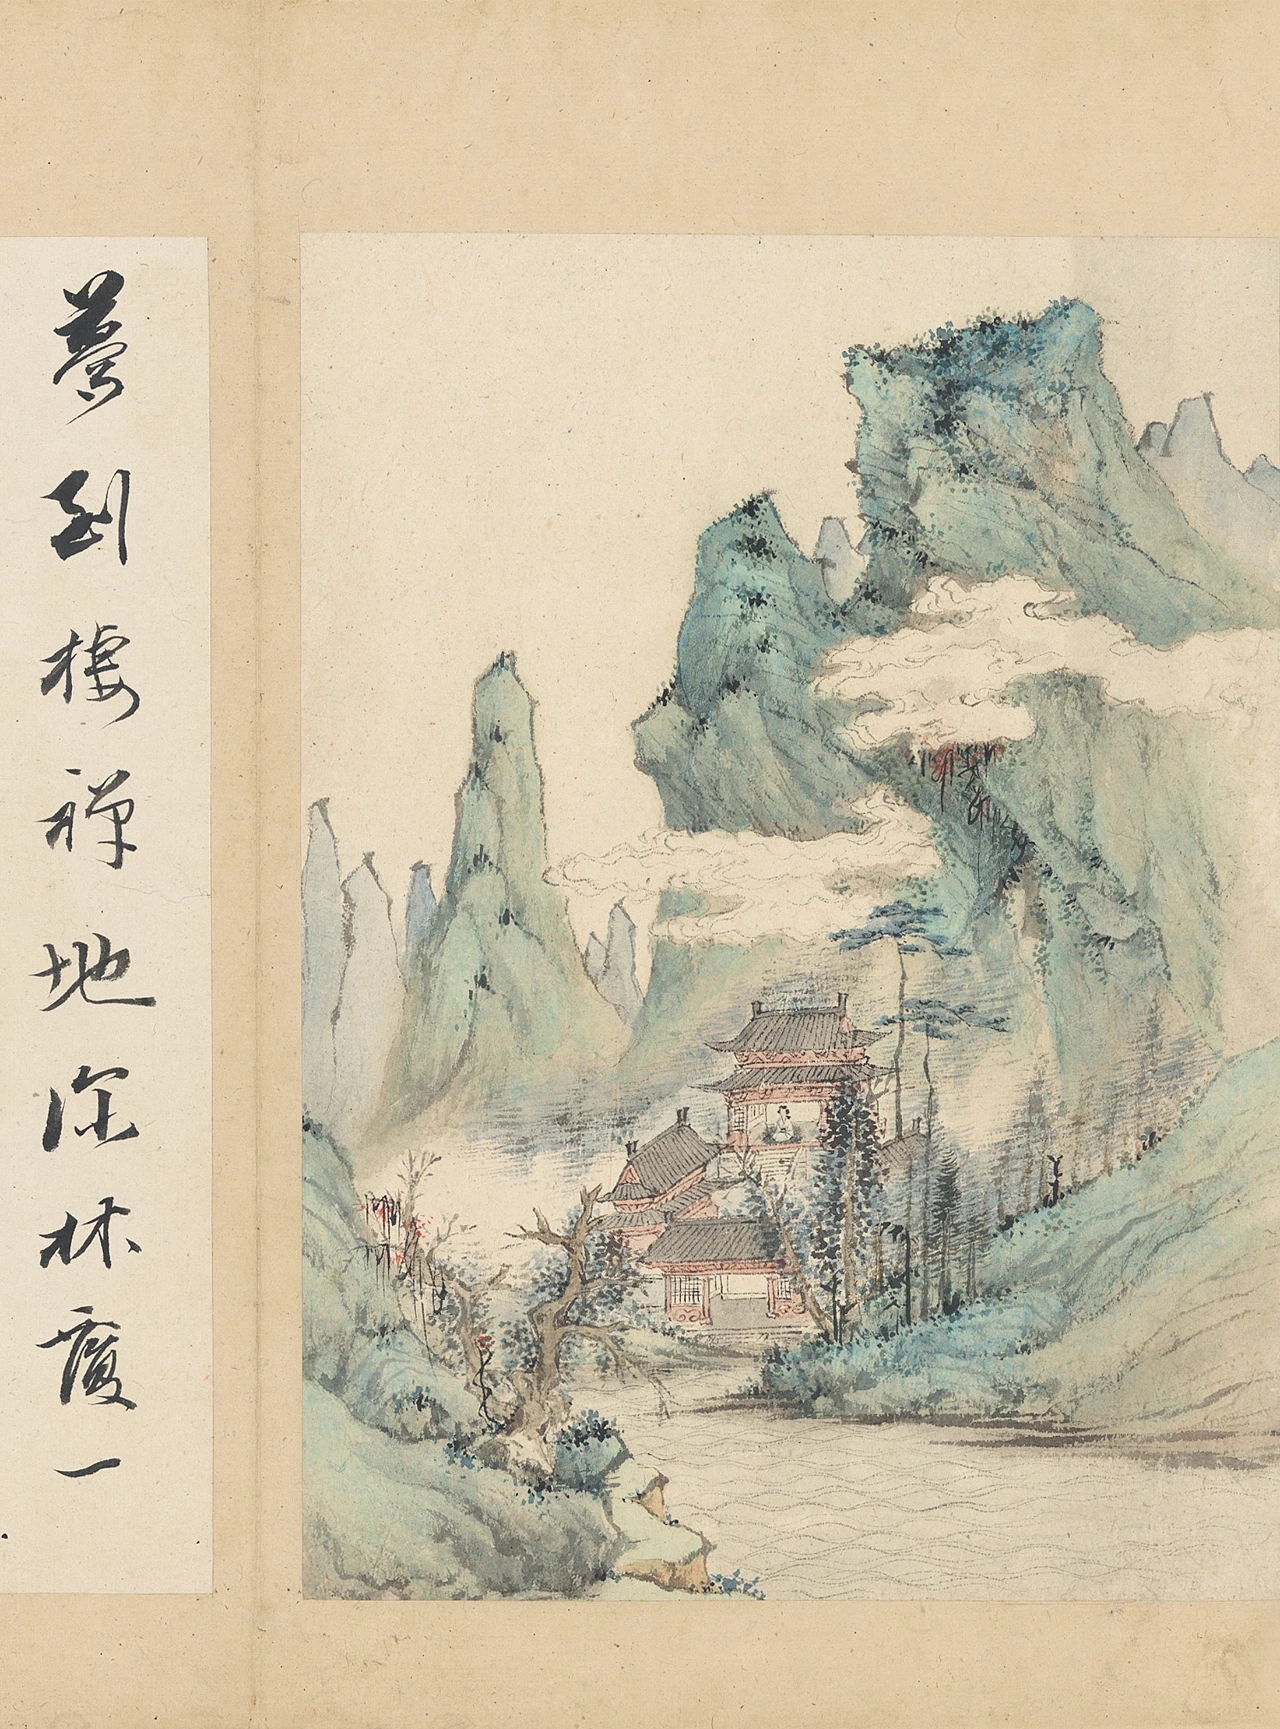 夢到棲禪地深林度一